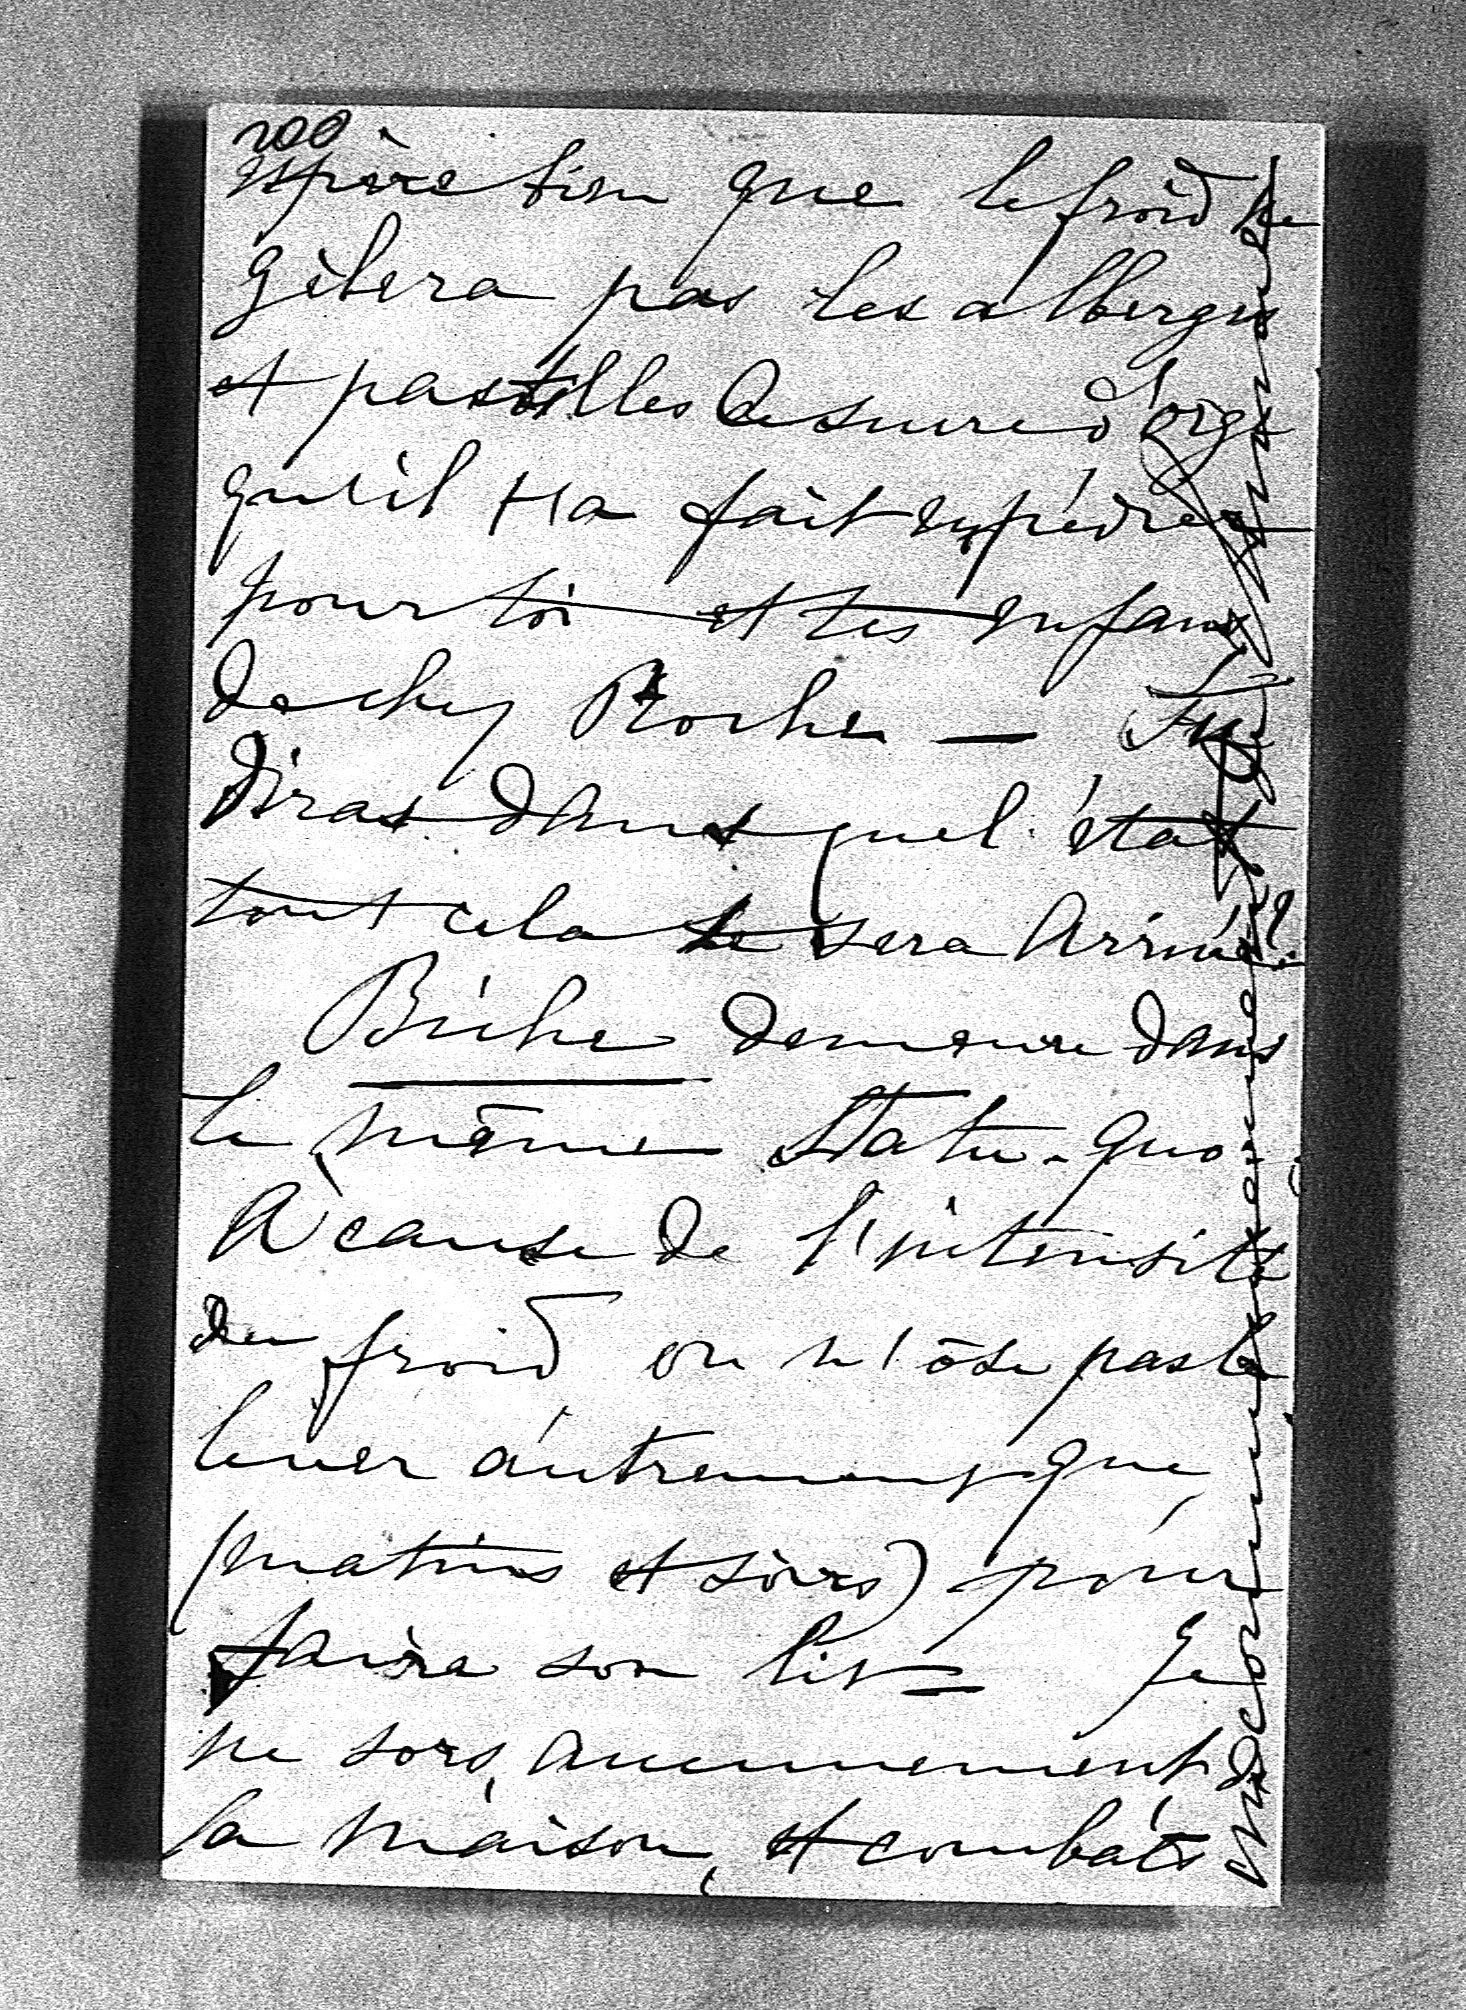 200
espère bien que le froid ne
gèlera pas les alberges
et pastilles de sucre d'orge
qu'il t'a fait expédier
pour toi et tes enfans
de chez Rocher — Tu
diras dans quel état
tout cela te sera arrivé?
Biche demeure dans
le même statu-quo.
A cause de l'intensité
du froid on n'ôse pas la
lever autrement que
(matins et soirs) pour
faire son lit = Je
ne sors aucunement de
la maison, et combats